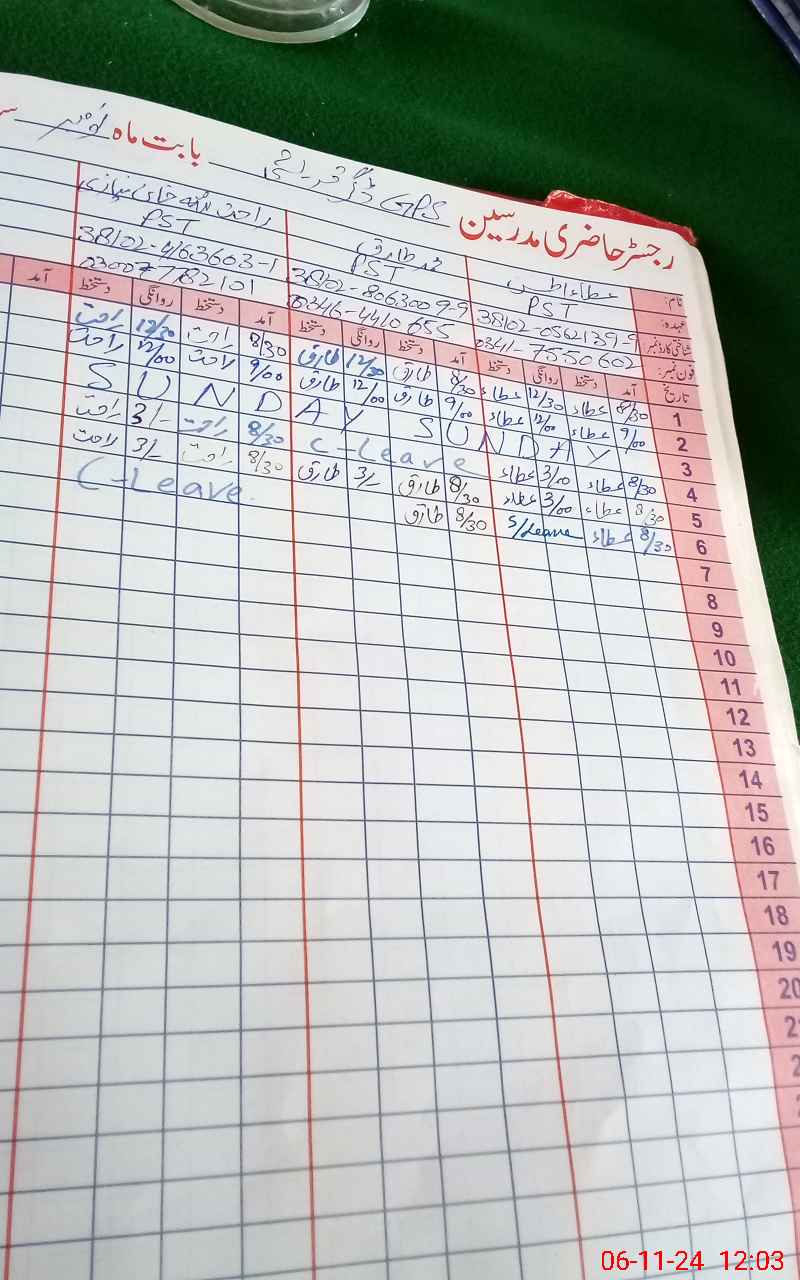 رجسٹر حاضری مدرسین GPS بابت ماہ نومبر
نام: عطاء محمد طارق راحت اللہ خان نیازی
عہدہ: PST PST PST
شناختی کارڈ نمبر: 38102-0562139-9 38102-8063009-9 38102-4163603-1
فون نمبر: 0341-7550602 0346-4410655 03007782101
تاریخ آمد دستخط روانگی دستخط آمد دستخط روانگی دستخط آمد دستخط روانگی دستخط آمد
1 8/30 عطاء 12/30 عطاء 8/30 طارق 12/30 طارق 8/30 راحت 12/30 راحت
2 9/00 عطاء 12/00 عطاء 9/00 طارق 12/00 طارق 9/00 راحت 12/00 راحت
3 SUNDAY SUNDAY
4 8/30 عطاء 3/00 عطاء C-Leave 8/30 راحت 3/- راحت
5 8/30 عطاء 3/00 عطاء 8/30 طارق 3/- طارق 8/30 راحت 3/- راحت
6 8/30 عطاء S/Leave 8/30 طارق C-Leave
7
8
9
10
11
12
13
14
15
16
17
18
19
20
06-11-24 12:03